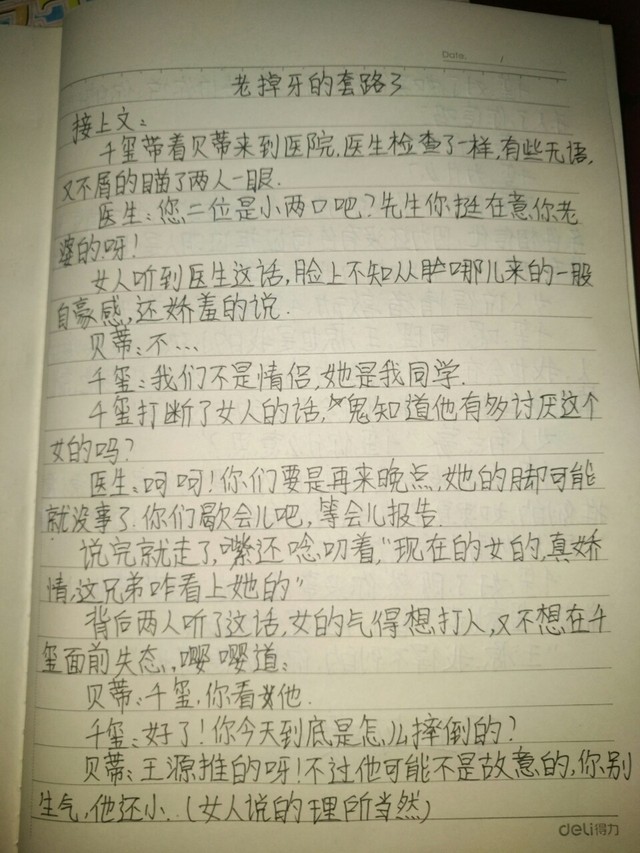 Date.    /
老掉牙的套路3
接上文:
千玺带着贝蒂来到医院,医生检查了一样,有些无语,
又不屑的瞄了两人一眼.
医生:您二位是小两口吧?先生你挺在意你老
婆的呀!
女人听到医生这话,脸上不知从哪儿来的一股
自豪感,还娇羞的说.
贝蒂:不...
千玺:我们不是情侣,她是我同学.
千玺打断了女人的话,鬼知道他有多讨厌这个
女的吗?
医生:呵呵!你们要是再来晚点,她的脚可能
就没事了.你们歇会儿吧,等会儿报告.
说完就走了,嘴还唸叨着,"现在的女的,真娇
情,这兄弟咋看上她的"
背后两人听了这话,女的气得想打人,又不想在千
玺面前失态,嘤嘤道:
贝蒂:千玺,你看他.
千玺:好了!你今天到底是怎么摔倒的?
贝蒂:王源推的呀!不过他可能不是故意的,你别
生气,他还小.(女人说的理所当然)
deli得力